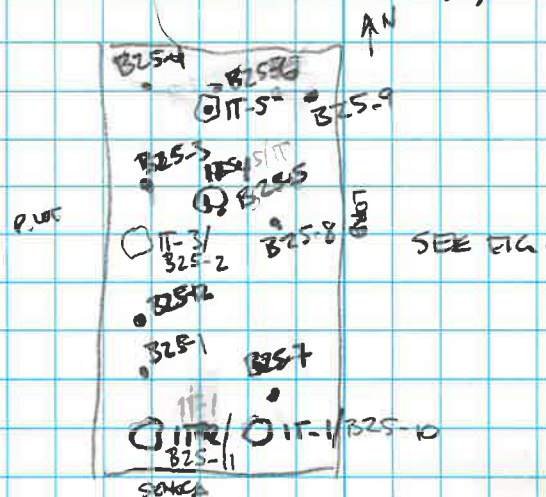 N
B25-4
B25-6
IT-5
B25-9
B25-3
S/IT
B25-5
IT-3/
B25-2
B25-8
SEE FIG
B25-12
B25-1
B25-7
IT-1
IT-2/
B25-11
IT-1/B25-10
SENECA